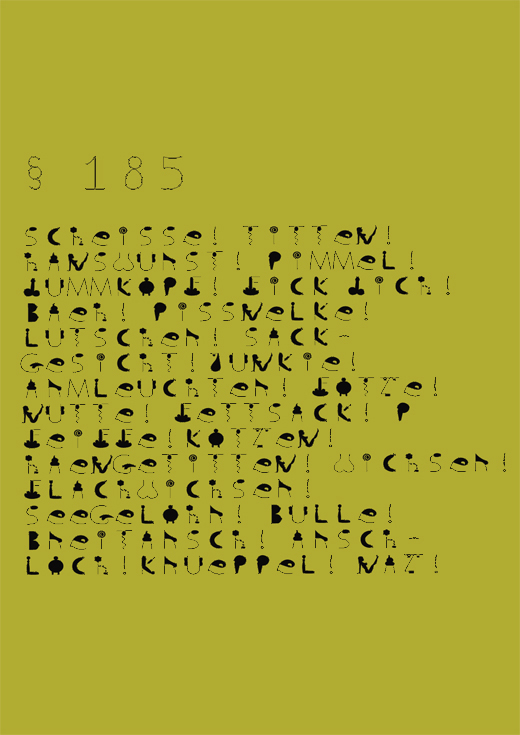 § 185
SCHEISSE! TITTEN!
HANSWURST! PIMMEL!
DUMMKOPF! FICK DICH!
BAEH! PISSNELKE!
LUTSCHER! SACK-
GESICHT! JUNKIE!
ARMLEUCHTER! FOTZE!
NUTTE! FETTSACK! P
FEIFFE! KOTZEN!
HAENGETITTEN! WICHSER!
FLACHWICHSER!
SEEGELOHR! BULLE!
BREITARSCH! ARSCH-
LOCH! KRUEPPEL! NAZ!